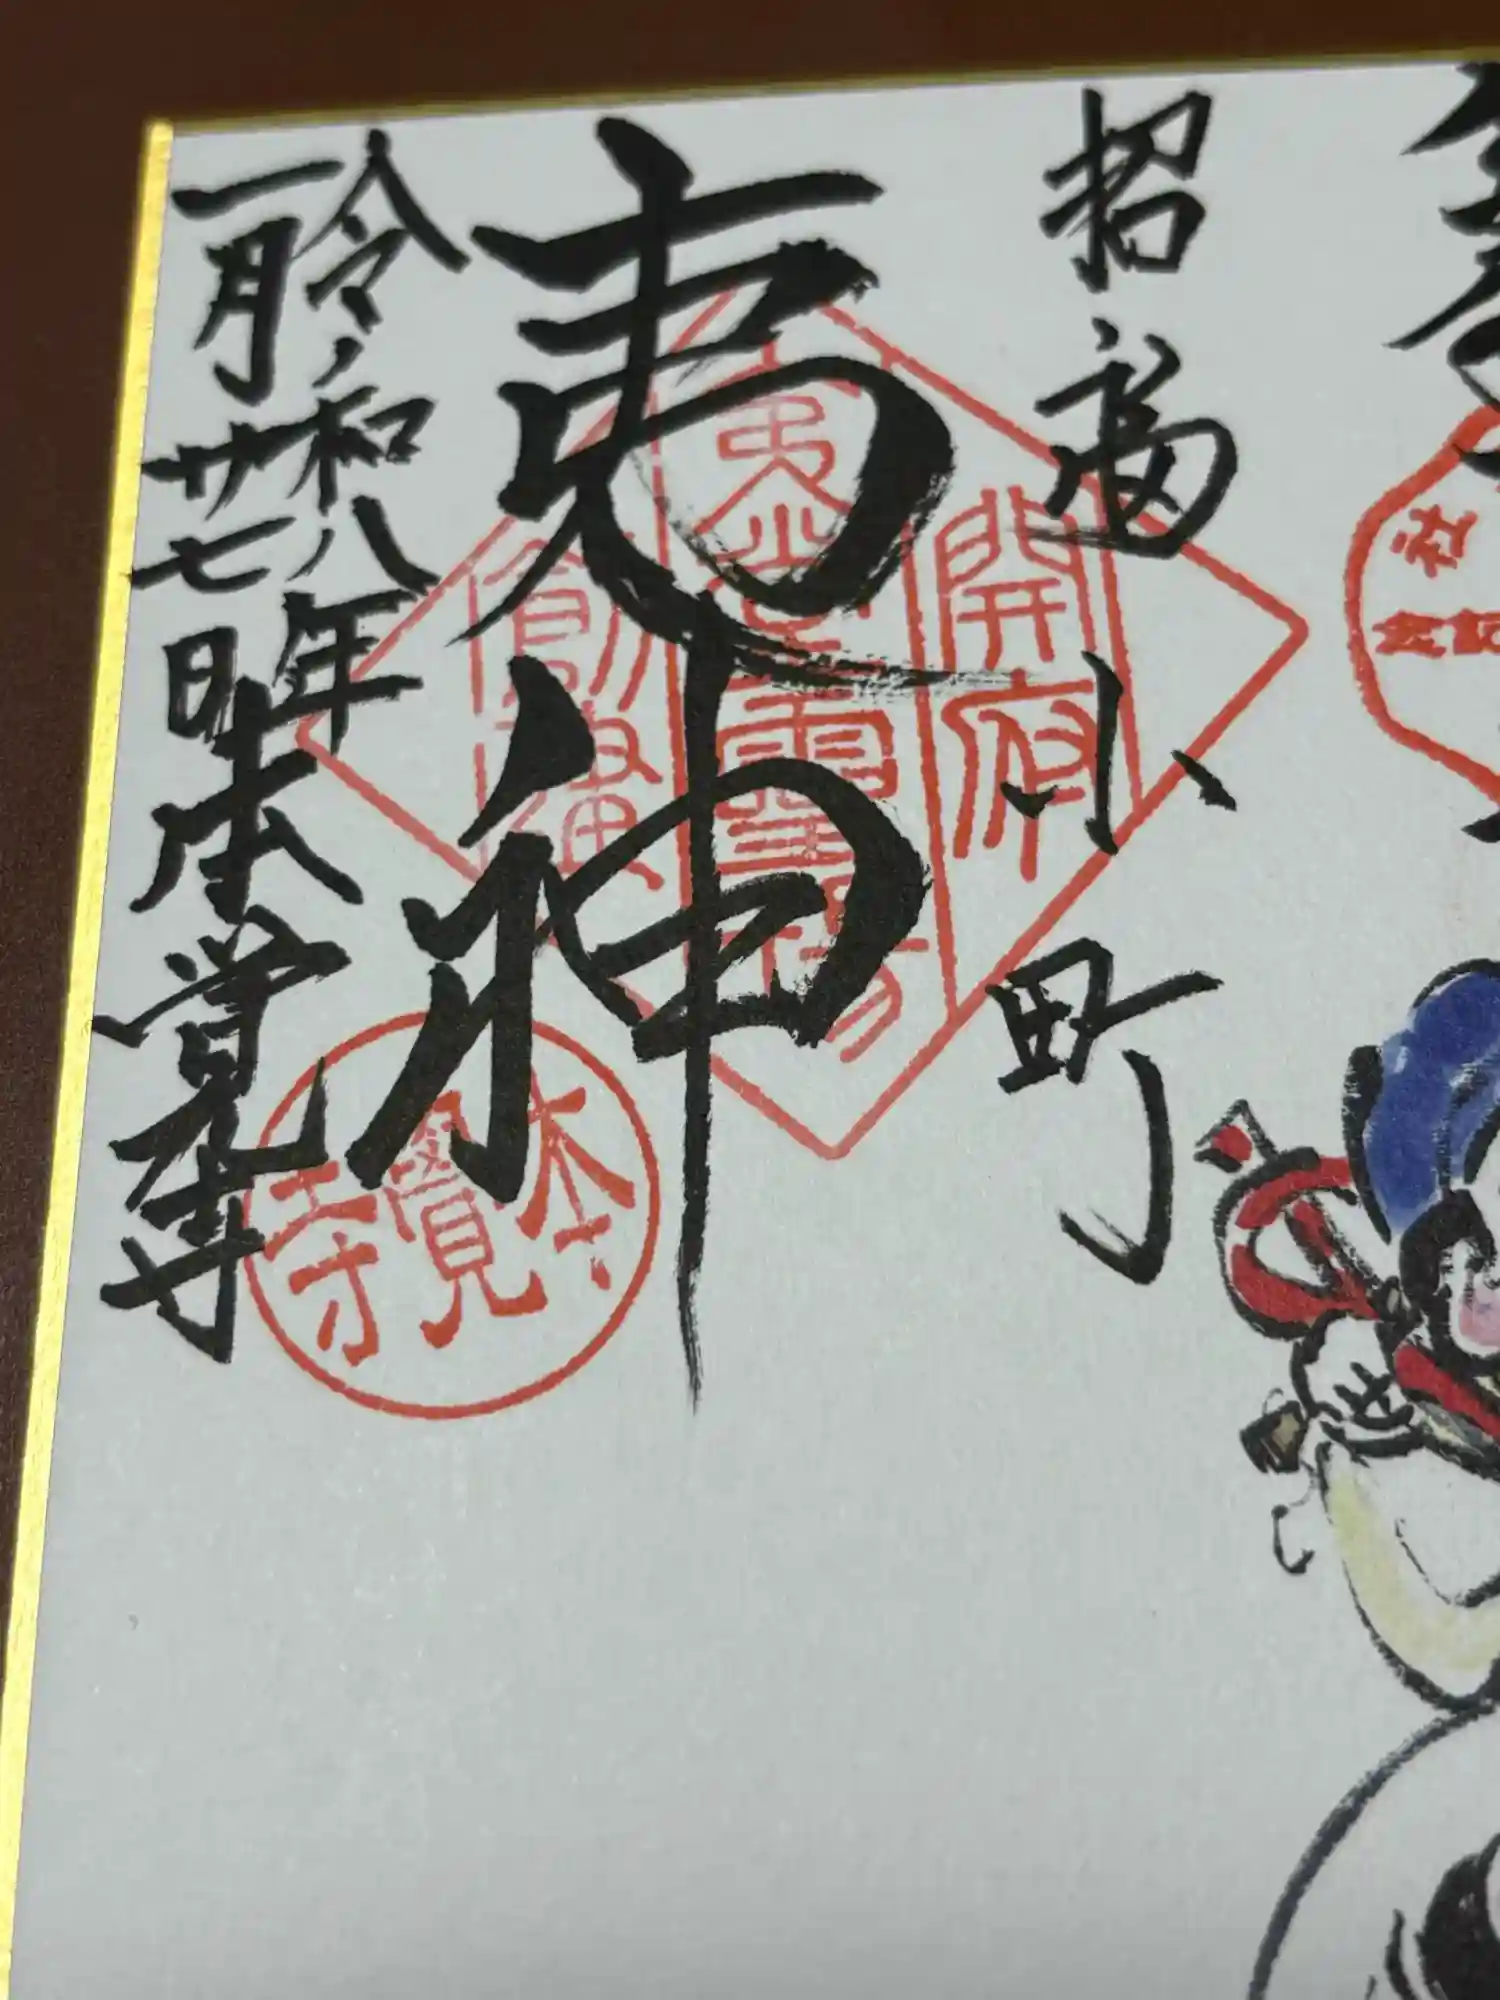 招福 小町
夷神
令和八年
一月廿七日
本覚寺
開府
夷堂霊場
創建
本覺寺